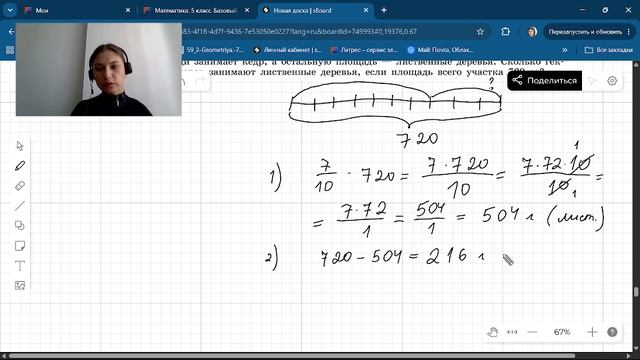 Мои
Математика 5 класс. Базовый
Новая доска | sBoard
83-4f18-4d7f-9436-7e53050e0227?lang=ru&boardId=749993#0,19376,0.67
Перезапустить и обновить
59_2-Geometriya.-7
Личный кабинет |
Литрес – сервис эл
Mail: Почта, Облак
Все закладки
занимает кедр, а остальную площадь — лиственные деревья. Сколько гек-
занимают лиственные деревья, если площадь всего участка 720
Поделиться
?
720
1) 7/10 · 720 = 7·720/10 = 7·72·10/10 =
= 7·72/1 = 504/1 = 504 г (лист.)
2) 720 – 504 = 216 г
67%